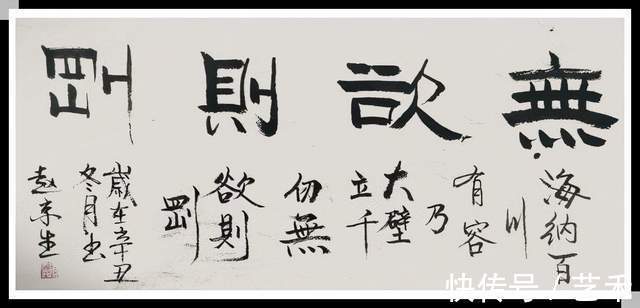 無欲則剛
海納百
川
有容
乃
大壁
立千
仞無
欲則
剛
歲在辛丑
冬月書
快传号/艺禾